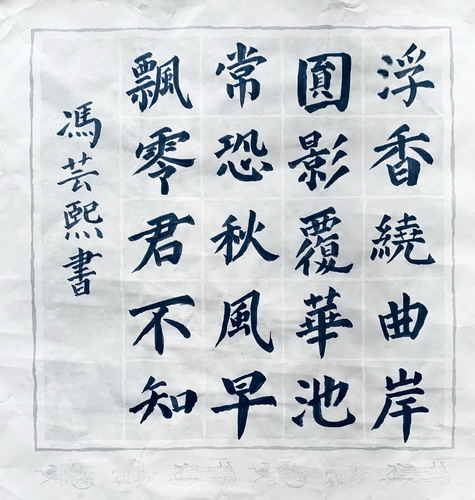 浮香繞曲岸
圓影覆華池
常恐秋風早
飄零君不知
馮芸熙書